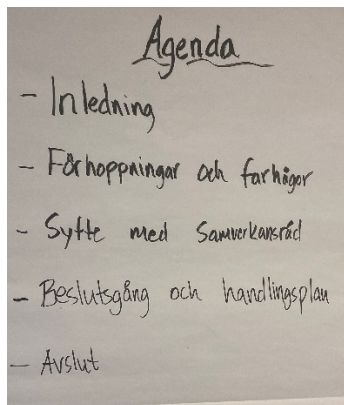 Agenda
- Inledning
- Förhoppningar och farhågor
- Syfte med Samverkansråd
- Beslutsgång och handlingsplan
- Avslut